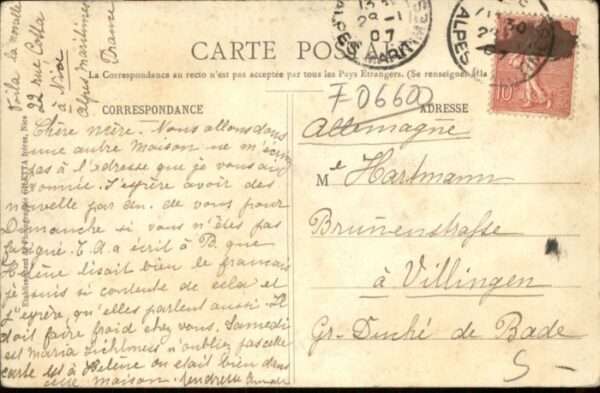 Voilà la nouvelle
22 rue Cotta
à Nice
Alpes maritimes
France
CARTE POSTALE
La Correspondance au recto n'est pas acceptée par tous les Pays Etrangers. (Se renseigner à la
CORRESPONDANCE
ADRESSE
F 0660
GILETTA frères, Nice
ALPES MARIT
29 -1
07
10
Chère mère. Nous allons dans
une autre maison ne m'écris
pas à l'adresse que je vous ai
donnée. J'espère avoir des
nouvelle par de vous pour
Dimanche si vous n'êtes pas
fatigué. T. A. a écrit à B. que
Hélène lisait bien le francais
je suis si contente de cela et
j'espère, qu'elles parlent aussi. Il
doit faire froid chez vous. Samedi
est Maria n'oubliez pas cette
carte est à Hélène on était bien dans
cette maison.
Allemagne
Me Hartmann
Brunnenstrasse
à Villingen
Gr. Duché de Bade
5-